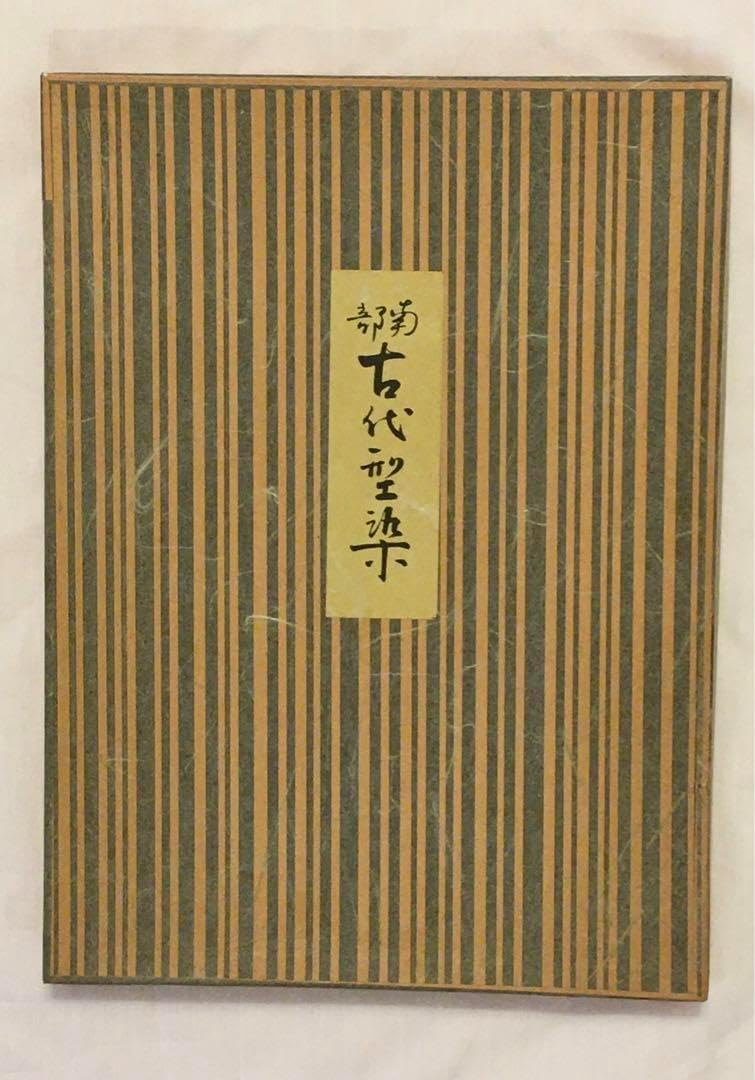 南部
古代型染